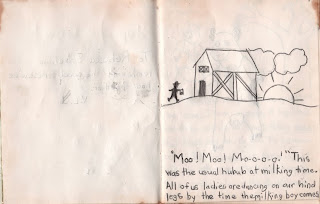 "Moo! Moo! Mo-o-o-o!" This
was the usual hubub at milking time.
All of us ladies are dancing on our hind
legs by the time the milking boy comes